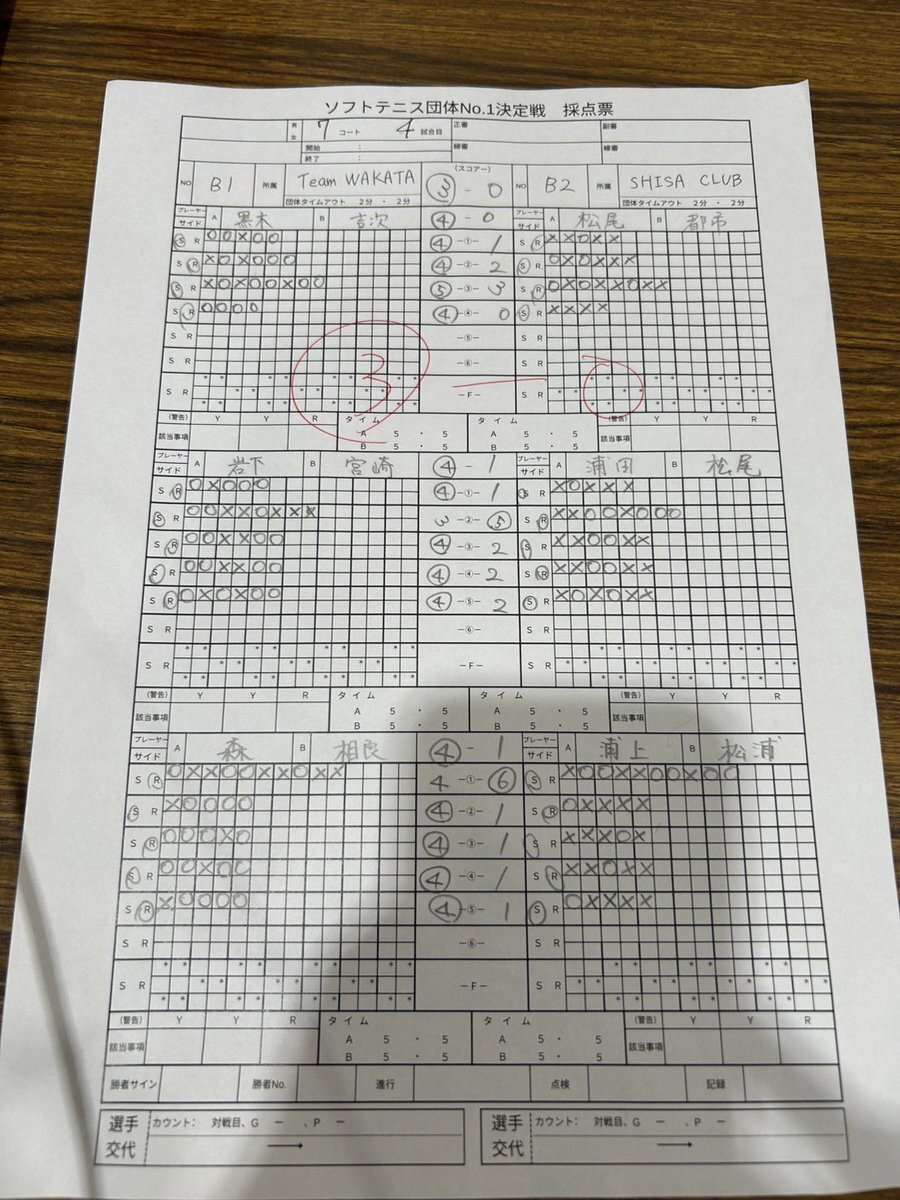 ソフトテニス団体No.1決定戦 採点票
男 女 7 コート 4 試合目 正審 副審
開始 : 線審 線審
終了 :
NO B1 所属 Team WAKATA (スコアー) ③ - 0 NO B2 所属 SHISA CLUB
団体タイムアウト 2分 ・ 2分 団体タイムアウト 2分 ・ 2分
プレーヤー サイド A 黒木 B 吉次 ④ - 0 プレーヤー サイド A 松尾 B 都市
S R O O X O O ④ -①- 1 S R X X O X X
S R X O X O O O ④ -②- 2 S R O X O X X X
S R X O X O O X O O ⑤ -③- 3 S R O X O X X O X X
S R O O O O ④ -④- 0 S R X X X X
S R -⑤- S R
S R -⑥- S R
S R 3 -F- 0 S R
(警告) Y Y R タイム タイム (警告) Y Y R
該当事項 A 5 ・ 5 A 5 ・ 5 該当事項
B 5 ・ 5 B 5 ・ 5
プレーヤー サイド A 岩下 B 宮崎 ④ - 1 プレーヤー サイド A 浦田 B 松尾
S R O X O O O ④ -①- 1 S R X O X X X
S R O O X X O X X X 3 -②- ⑤ S R X X O O X O O O
S R O O X X O O ④ -③- 2 S R X X O O X X
S R O O X X O O ④ -④- 2 S R X X O O X X
S R O X O X O O ④ -⑤- 2 S R X O X O X X
S R -⑥- S R
S R -F- S R
(警告) Y Y R タイム タイム (警告) Y Y R
該当事項 A 5 ・ 5 A 5 ・ 5 該当事項
B 5 ・ 5 B 5 ・ 5
プレーヤー サイド A 森 B 相良 ④ - 1 プレーヤー サイド A 浦上 B 松浦
S R O X X O O X X O X X 4 -①- ⑥ S R X O O X X O O X O O
S R X O O O O ④ -②- 1 S R O X X X X
S R O O O X O ④ -③- 1 S R X X X O X
S R O O X O O ④ -④- 1 S R X X O X X
S R X O O O O ④ -⑤- 1 S R O X X X X
S R -⑥- S R
S R -F- S R
(警告) Y Y R タイム タイム (警告) Y Y R
該当事項 A 5 ・ 5 A 5 ・ 5 該当事項
B 5 ・ 5 B 5 ・ 5
勝者サイン 勝者No. 進行 点検 記録
選手交代 カウント: 対戦目、G ー 、P ー → 
選手交代 カウント: 対戦目、G ー 、P ー →